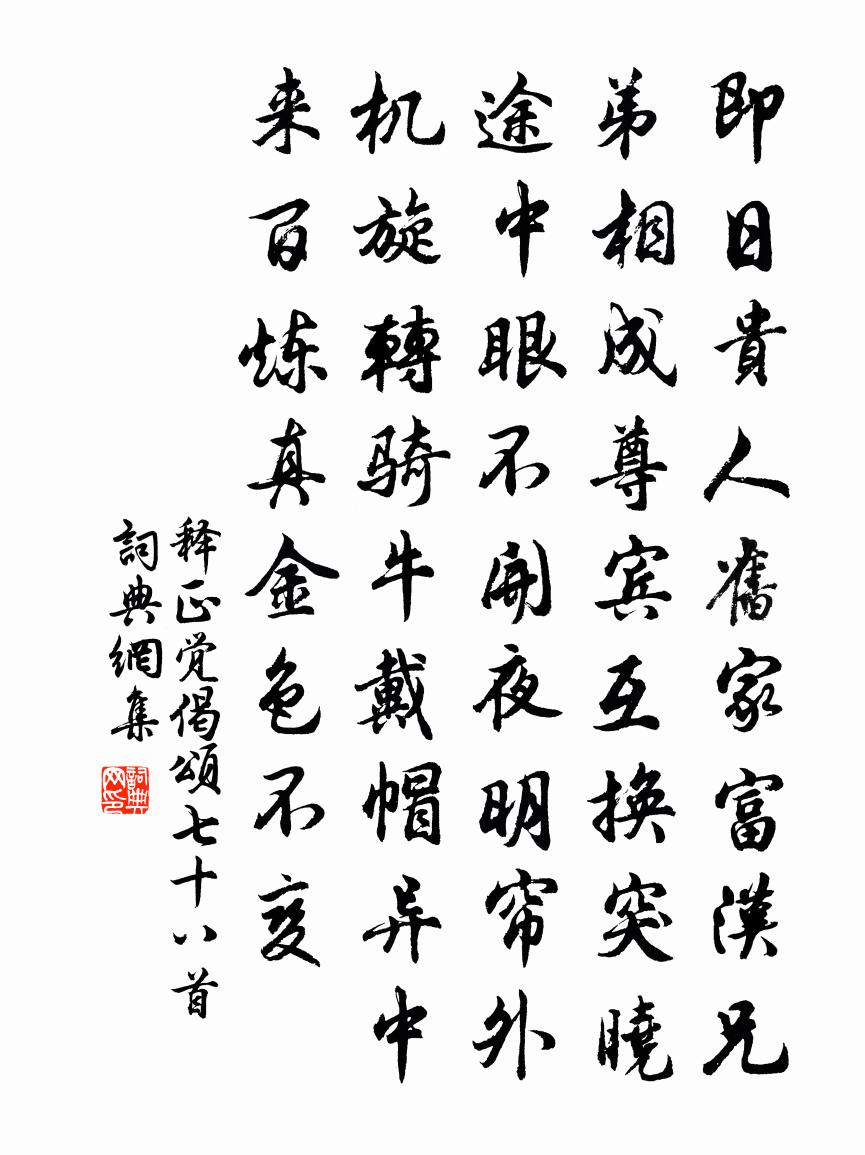 即日貴人舊家富漢兄
弟相成尊宾互換突曉
途中眼不開夜明帘外
机旋轉骑牛戴帽异中
来百炼真金色不变
释正觉偈頌七十八首
詞典網集
詞典网印